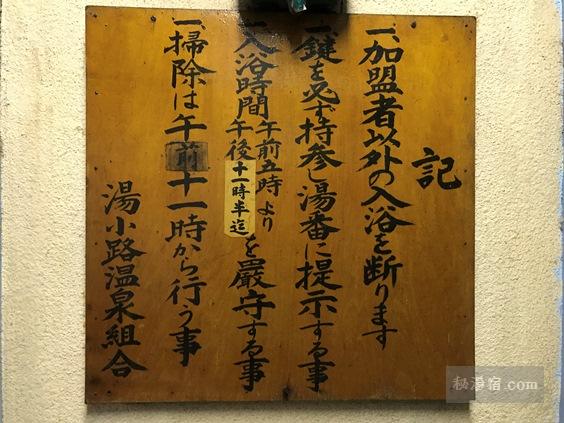 記
一、加盟者以外の入浴を断ります
一、鍵を必ず持参し湯番に提示する事
一、入浴時間午前五時より午後十一時半迄を厳守する事
一、掃除は午前十一時から行う事
湯小路温泉組合
秘湯宿.com